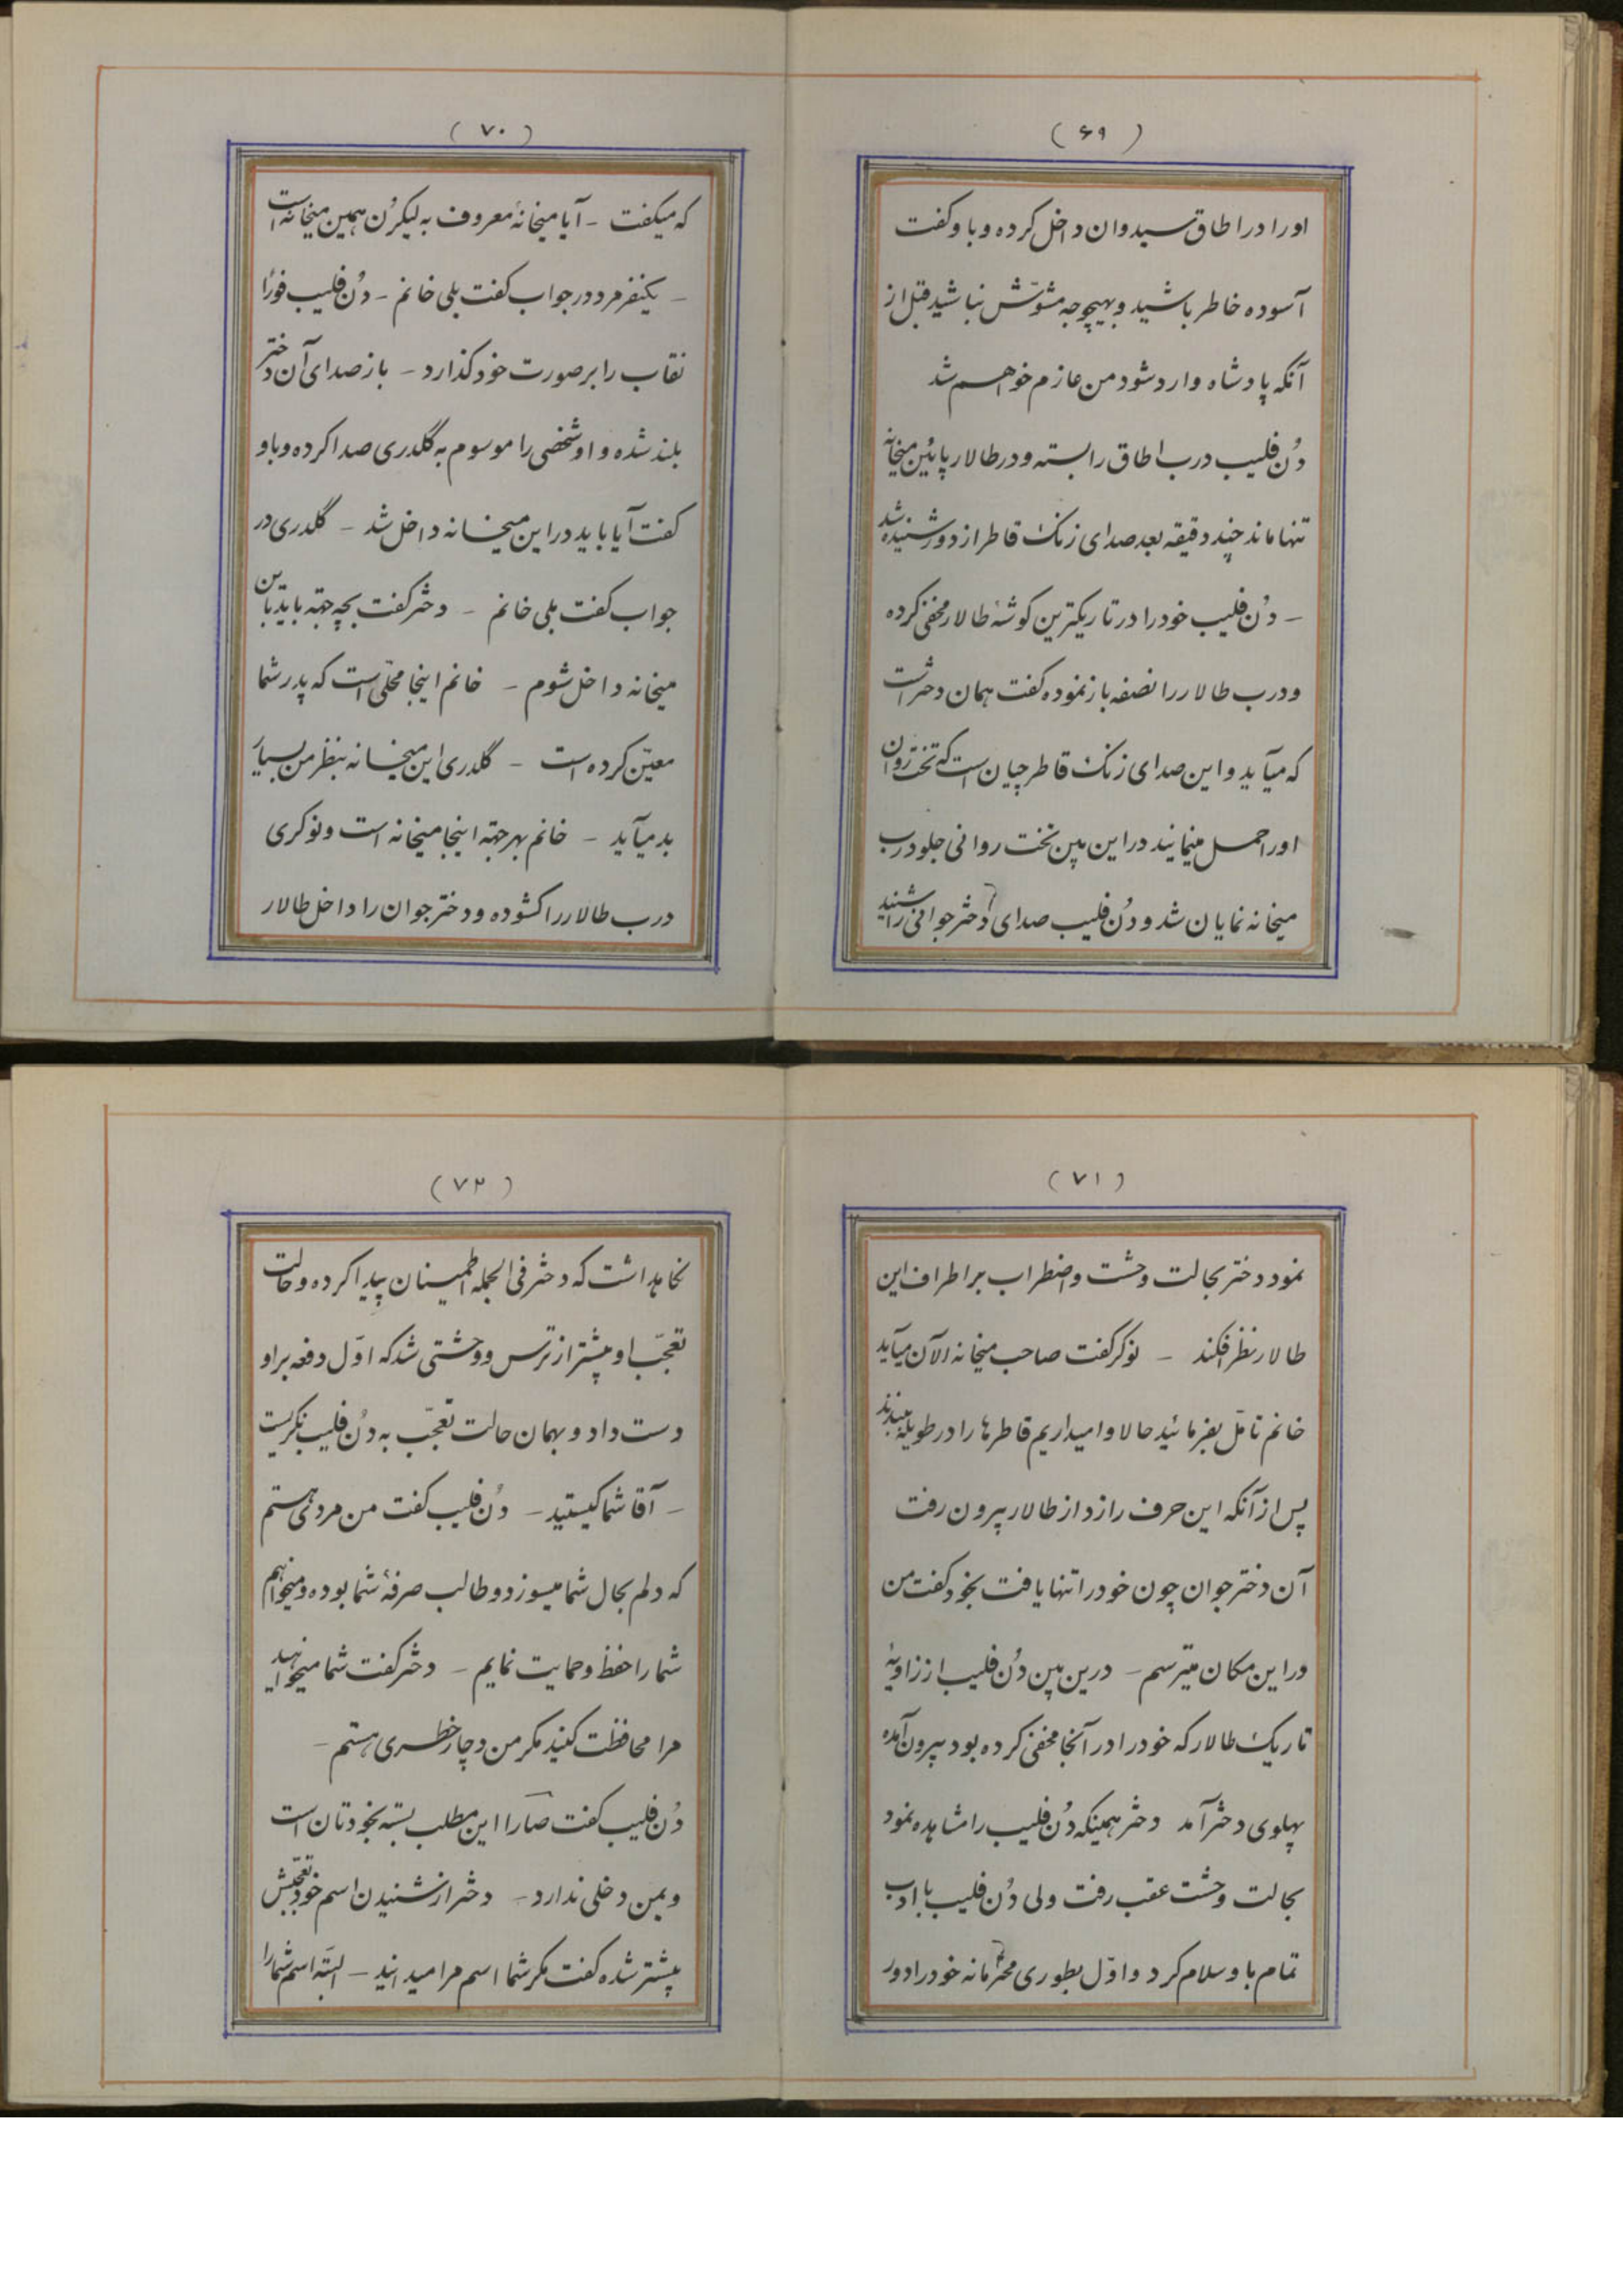 (۶۹)
اورا در اطاق سیدوان داخل کرده و باو گفت
آسوده خاطر باشید و بهیچوجه مشوّش نباشید قبل از
آنکه پادشاه وارد شود من عازم خواهم شد
دُن فلیپ درب اطاق را بسته و در طالار پائین میخانه
تنها ماند چند دقیقه بعد صدای زنک قاطر از دور شنیده شد
– دُن فلیپ خود را در تاریکترین کوشهٔ طالار مخفی کرده
و درب طالار را نصفه باز نموده کفت همان دختر است
که میآید و این صدای زنک قاطرچیان است که تخت روان
اورا حمل مینمایند در این بین تخت روانی جلو درب
میخانه نمایان شد و دُن فلیپ صدای دختر جوانی را شنید
(۷۰)
که میکفت – آیا میخانهٔ معروف به لیکرُن همین میخانه است
– یکنفر مرد در جواب کفت بلی خانم – دُن فلیپ فوراً
نقاب را بر صورت خود کذارد – باز صدای آن دختر
بلند شده و او شخصی را موسوم به گلدری صدا کرده و باو
کفت آیا باید در این میخانه داخل شد – گلدری در
جواب کفت بلی خانم – دختر کفت بچه جهة باید باین
میخانه داخل شوم – خانم اینجا محلّی است که پدر شما
معیّن کرده است – گلدری این میخانه بنظر من بسیار
بد میآید – خانم بهر جهة اینجا میخانه است و نوکری
درب طالار را کشوده و دختر جوان را داخل طالار
(۷۱)
نمود دختر بحالت وحشت و اضطراب بر اطراف این
طالار نظر افکند – نوکر گفت صاحب میخانه الآن میآید
خانم تامّل بفرمائید حالا وامیداریم قاطرها را در طویله ببندند
پس از آنکه این حرف را زد از طالار بیرون رفت
آن دختر جوان چون خود را تنها یافت بخود کفت من
در این مکان میترسم – درین بین دُن فلیپ از زاویهٔ
تاریک طالار که خود را در آنجا مخفی کرده بود بیرون آمده
پهلوی دختر آمد دختر همینکه دُن فلیپ را مشاهده نمود
بحالت وحشت عقب رفت ولی دُن فلیپ با ادب
تمام باو سلام کرد و اوّل بطوری محترمانه خود را دور
(۷۲)
نکاهداشت که دختر فی الجمله اطمینان پیدا کرده و حالت
تعجّب او بیشتر از ترس و وحشتی شد که اوّل دفعه بر او
دست داد و بهمان حالت تعجّب به دُن فلیپ نکریست
– آقا شما کیستید – دُن فلیپ کفت من مردی هستم
که دلم بحال شما میسوزد و طالب صرفهٔ شما بوده و میخواهم
شما را حفظ و حمایت نمایم – دختر کفت شما میخواهید
مرا محافظت کنید مکر من دچار خطری هستم –
دُن فلیپ کفت صارا این مطلب بسته بخودتان است
و بمن دخلی ندارد – دختر از شنیدن اسم خود تعجّبش
بیشتر شده کفت مکر شما اسم مرا میدانید – البتّه اسم شما را